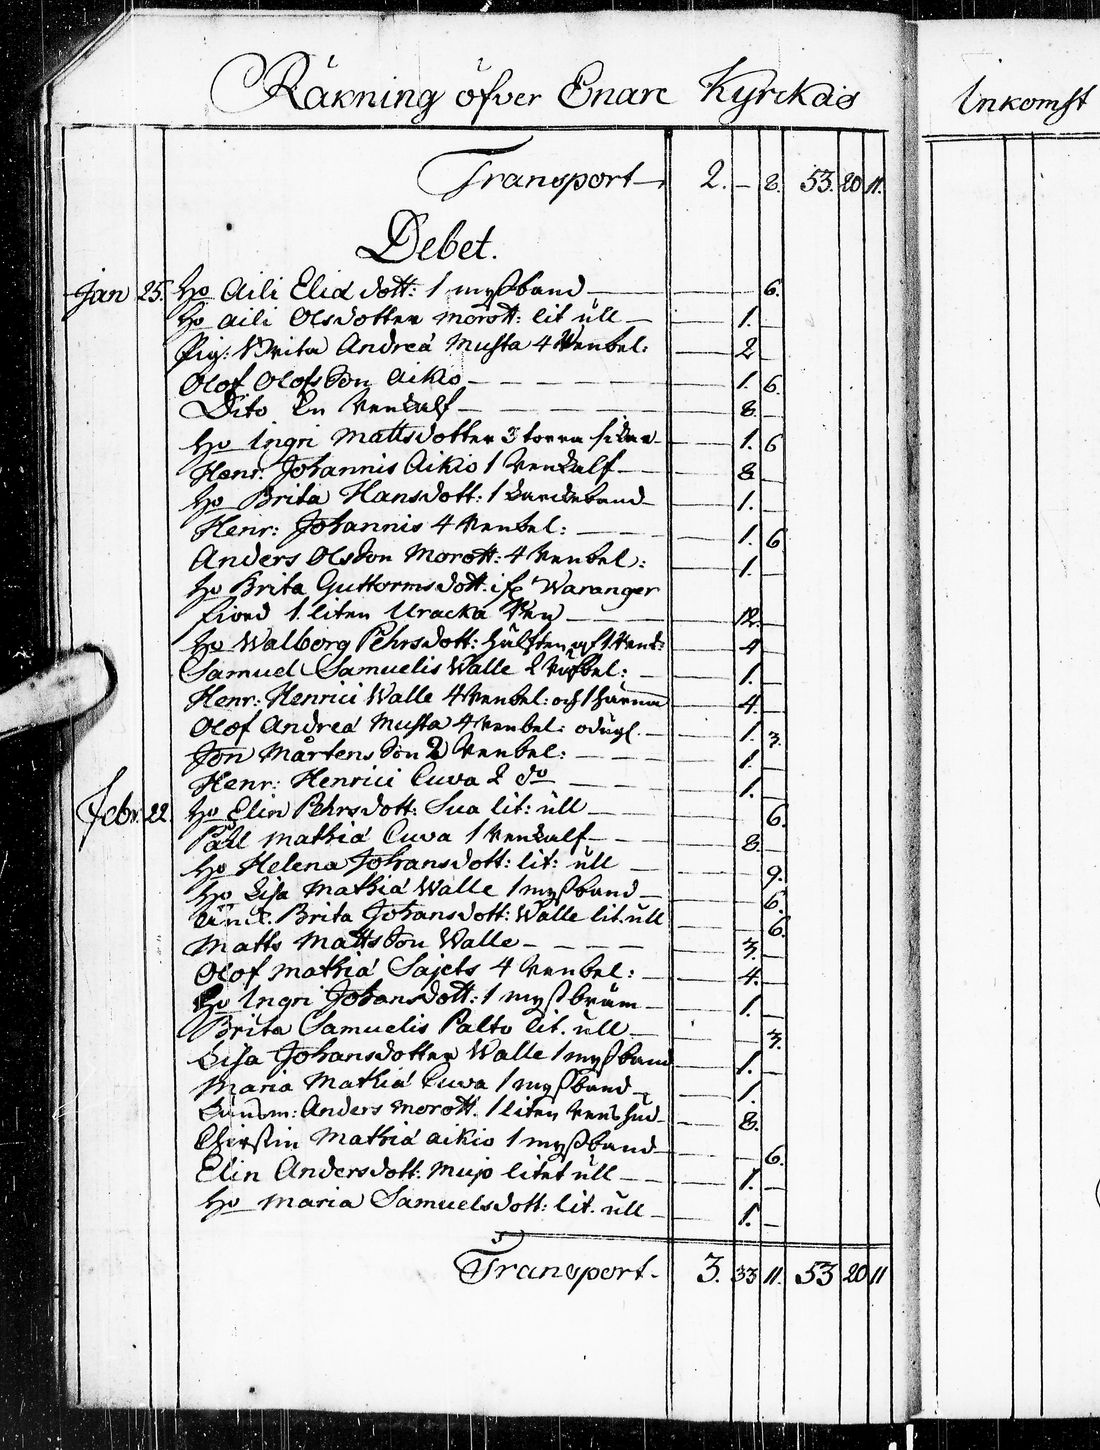 Räkning öfver Enare Kyrckas
Inkomst
Transport 2. – 8. 53. 20 11.
Debet.
Jan 25. Ho Aili Elia dott: 1 myßband – 6.
Ho Aili Olsdotter Morott: lit ull – 1. –
Pig: Brita Andreæ Musta 4 Renbel: – 2 –
Olof Olofsson Aikio – 1. 6.
Dito En Renkalf – 8. –
Ho Ingri Mattsdotter 3 torra – 1. 6
Henr: Johannis Aikio 1 Renkalf – 8 –
Ho Brita Hansdott: 1 – 1. –
Henr: Johannis 4 Renbel: – 1. 6
Anders Olsson Morott: 4 Renbel: – 1. –
Ho Brita Guttormsdott: Waranger
fiord 1. liten Uracka Ren – 12. –
Ho Walborg Pehrsdott: hälften af 1 – 4 –
Samuel Samuelis Walle 2 – 1. –
Henr: Henrici Walle 4 Renbel: och 1 – 4. –
Olof Andreæ Musta 4 Renbel: odugl. – 1. 3.
Jon Mårtensson 2 Renbel: – 1. –
Henr: Henrici Cuva 2 do – 1. –
Febr. 22. Ho Elin Pehrsdott: Sua lit: ull – 6.
Påll Mathiæ Cuva 1 Renkalf – 8. –
Ho Helena Johansdott: lit: ull – 9.
Ho Lisa Mathiæ Walle 1 myßband – 6.
Brita Johansdott: Walle lit. ull – 6.
Matts Mattsson Walle – 3. –
Olof Mathiæ Sajets 4 Renbel: – 4. –
Ho Ingri Johansdott: 1 myßbräm – 1. –
Brita Samuelis Palto lit. ull – 3.
Lisa Johansdotter Walle 1 myßband – 1. –
Maria Mathiæ Cuva 1 myßband – 1.
Anders Morott. 1 liten Renshud – 8.
Chirstin Mathiæ Aikio 1 myßband – 6.
Elin Andersdott: Mujo litet ull – 1. –
Ho Maria Samuelsdott: lit. ull – 1. –
Transport. 3. 33 11. 53 20 11